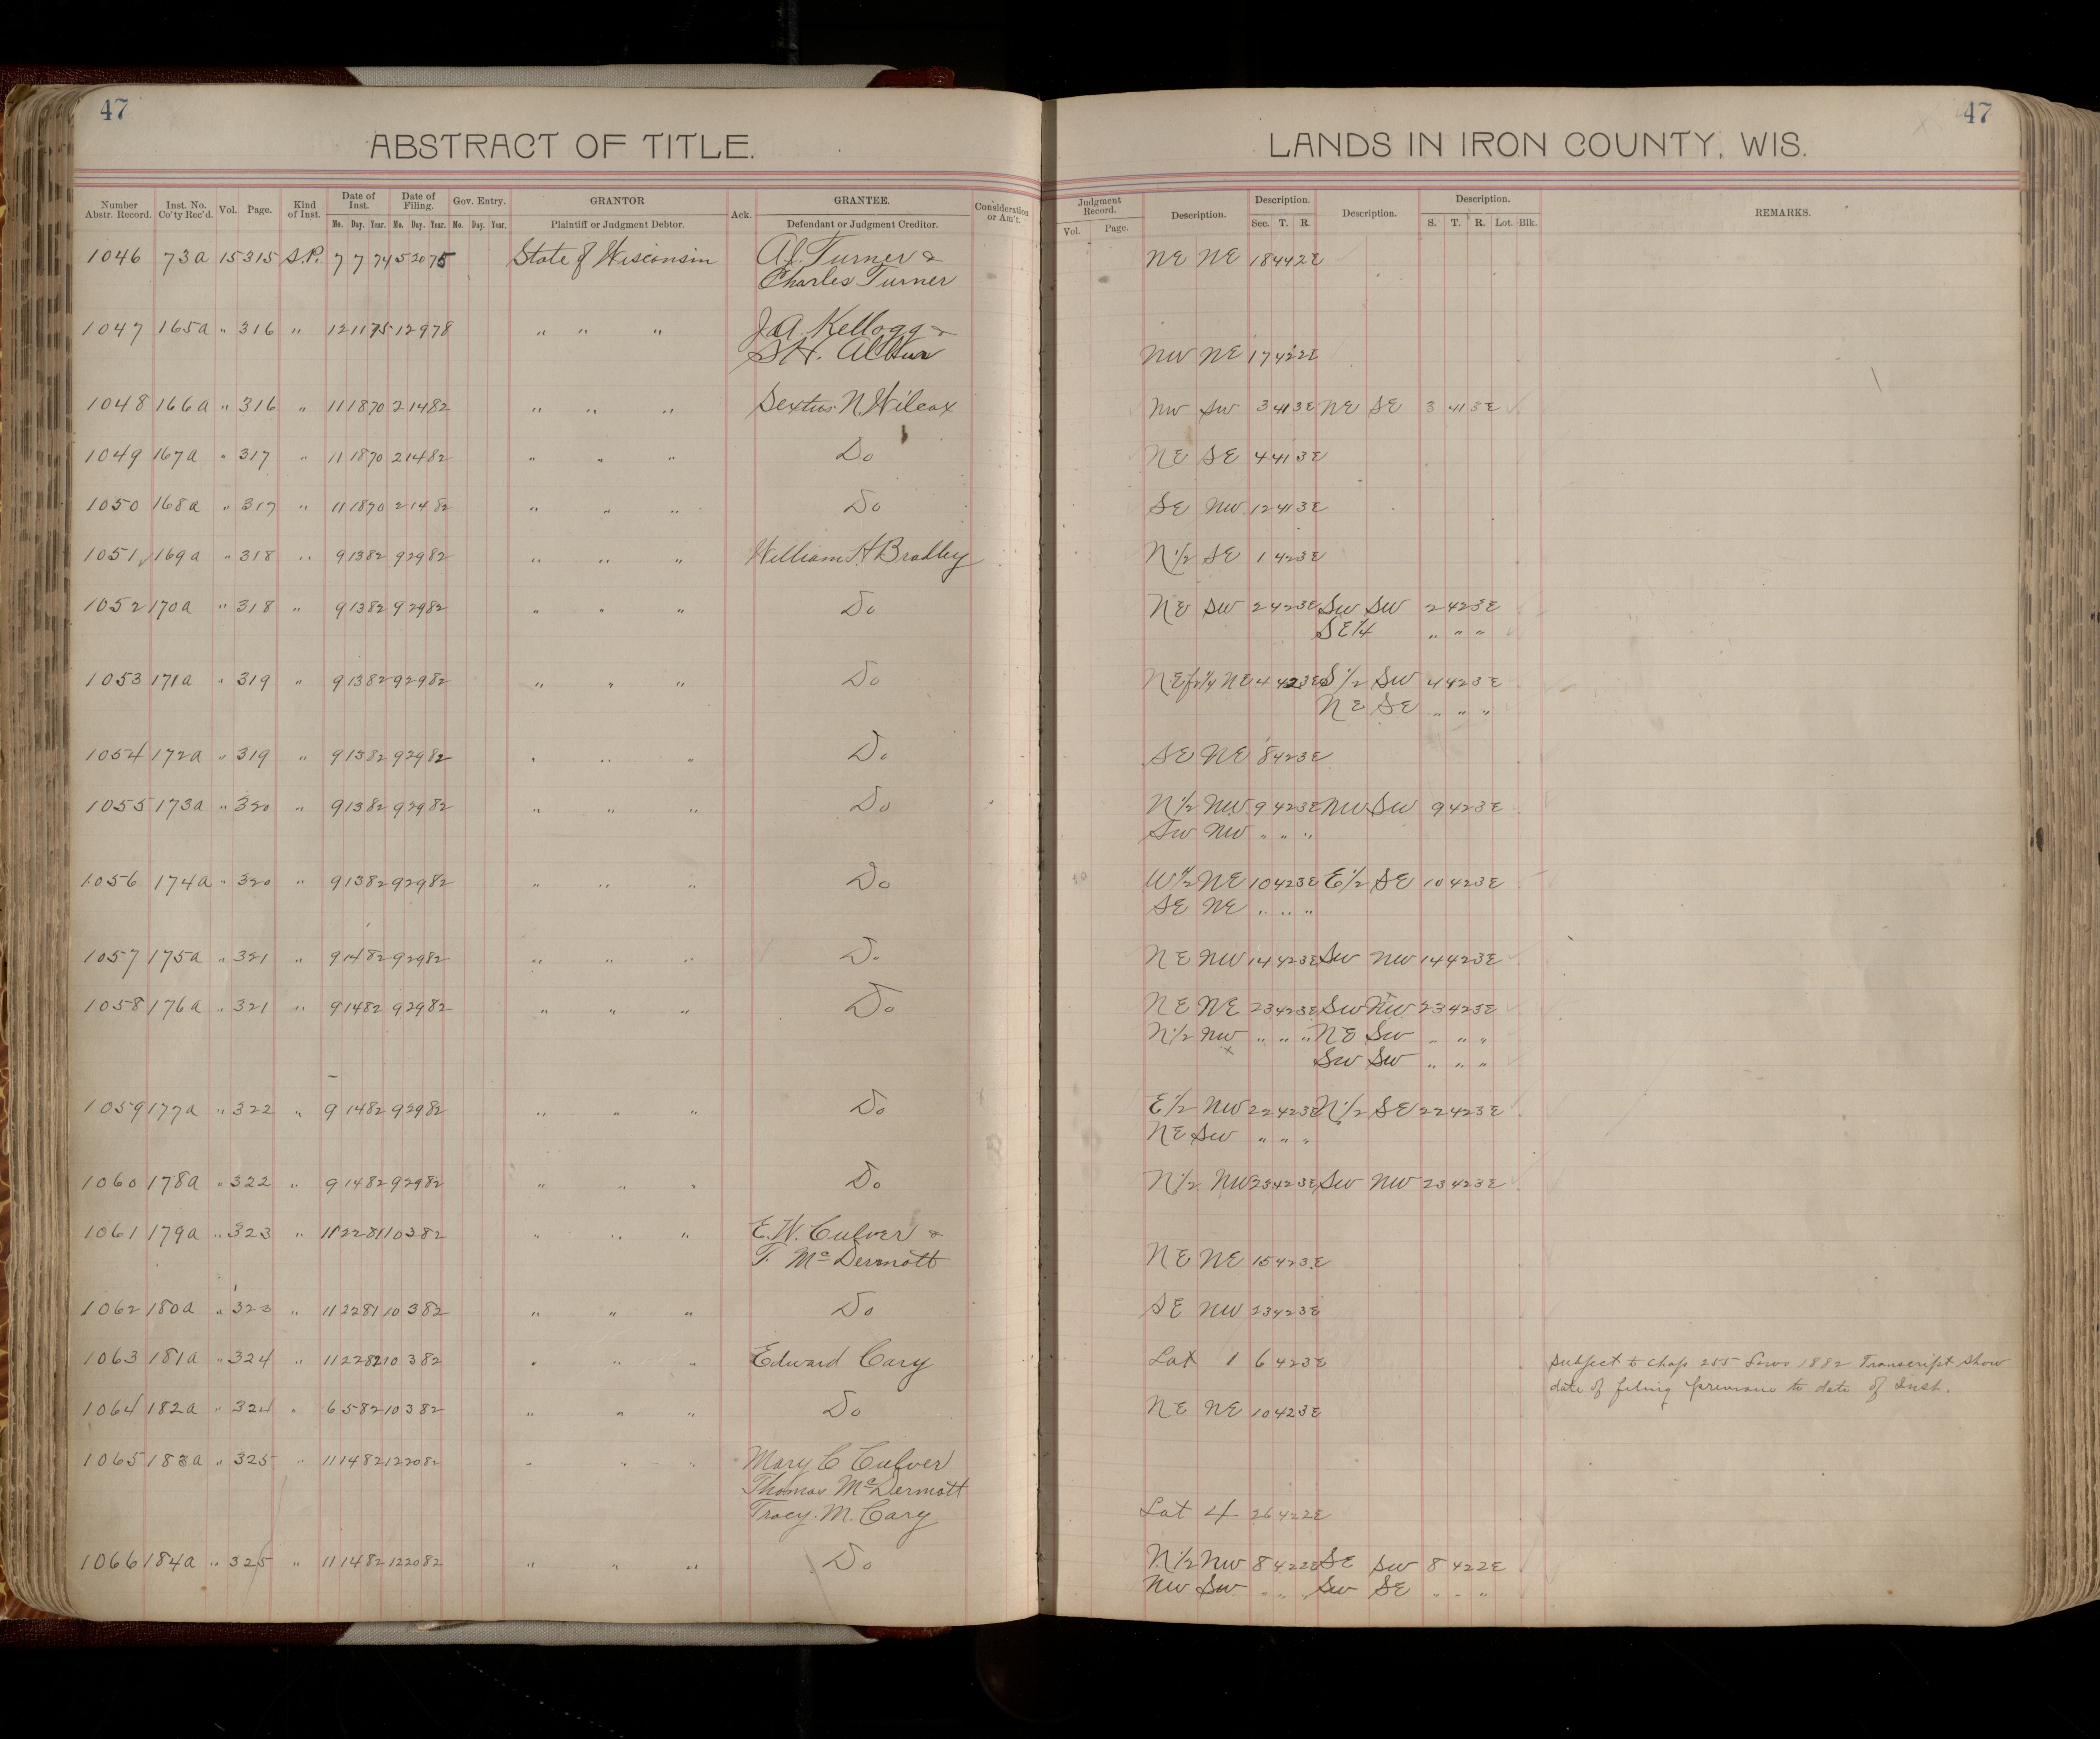 47
ABSTRACT OF TITLE.
47
LANDS IN IRON COUNTY, WIS.
Number Abstr. Record. Inst. No. Co'ty Rec'd. Vol. Page. Kind of Inst. Date of Inst. Mo. Day. Year. Date of Filing. Mo. Day. Year. Gov. Entry. Mo. Day. Year. GRANTOR Plaintiff or Judgment Debtor. Ack. GRANTEE. Defendant or Judgment Creditor. Consideration or Am't. Judgment Record. Vol. Page. Description. Description. Sec. T. R. Description. Description. S. T. R. Lot. Blk. REMARKS.
1046 73a 15 315 S.P. 7 7 74 5 20 75 State of Wisconsin A.J. Turner & NE NE 18 44 2E
Charles Turner
1047 165a " 316 " 12 11 75 12 9 78 " " " J.A. Kellogg &
S.H. NW NE 17 42 2E
1048 166a " 316 " 11 18 70 2 14 82 " " " Sextus N. Wilcox NW SW 3 41 3E NE SE 3 41 3E
1049 167a " 317 " 11 18 70 2 14 82 " " " Do NE SE 4 41 3E
1050 168a " 317 " 11 18 70 2 14 82 " " " Do SE NW 12 41 3E
1051 169a " 318 " 9 13 82 9 29 82 " " " William H Bradley N 1/2 SE 1 42 3E
1052 170a " 318 " 9 13 82 9 29 82 " " " Do NE SW 2 42 3E SW SW 2 42 3E
SE 1/4 " " "
1053 171a " 319 " 9 13 82 9 29 82 " " " Do NE fr 1/4 NE 4 42 3E S 1/2 SW 4 42 3E
NE SE " " "
1054 172a " 319 " 9 13 82 9 29 82 " " " Do SE NE 8 42 3E
1055 173a " 320 " 9 13 82 9 29 82 " " " Do N 1/2 NW 9 42 3E NW SW 9 42 3E
SW NW " " "
1056 174a " 320 " 9 13 82 9 29 82 " " " Do W 1/2 NE 10 42 3E E 1/2 SE 10 42 3E
SE NE " " "
1057 175a " 321 " 9 14 82 9 29 82 " " " Do NE NW 14 42 3E SW NW 14 42 3E
1058 176a " 321 " 9 14 82 9 29 82 " " " Do NE NE 23 42 3E SW NW 23 42 3E
N 1/2 NW " " " NE SW " " "
x SW SW " " "
1059 177a " 322 " 9 14 82 9 29 82 " " " Do E 1/2 NW 22 42 3E N 1/2 SE 22 42 3E
NE SW " " "
1060 178a " 322 " 9 14 82 9 29 82 " " " Do N 1/2 NW 23 42 3E SW NW 23 42 3E
1061 179a " 323 " 11 22 81 10 3 82 " " " E.W. Culver &
T. McDermott NE NE 15 42 3E
1062 180a " 323 " 11 22 81 10 3 82 " " " Do SE NW 23 42 3E
1063 181a " 324 " 11 22 82 10 3 82 " " " Edward Cary Lot 1 6 42 3E Subject to Chap 255 Laws 1882 Transcript show
date of filing previous to date of Inst.
1064 182a " 324 " 6 5 82 10 3 82 " " " Do NE NE 10 42 3E
1065 183a " 325 " 11 14 82 12 20 82 " " " Mary C Culver
Thomas McDermott
Tracy. M. Cary Lot 4 26 42 2E
1066 184a " 325 " 11 14 82 12 20 82 " " " Do N 1/2 NW 8 42 2E SE SW 8 42 2E
NW SW " " " SW SE " " "